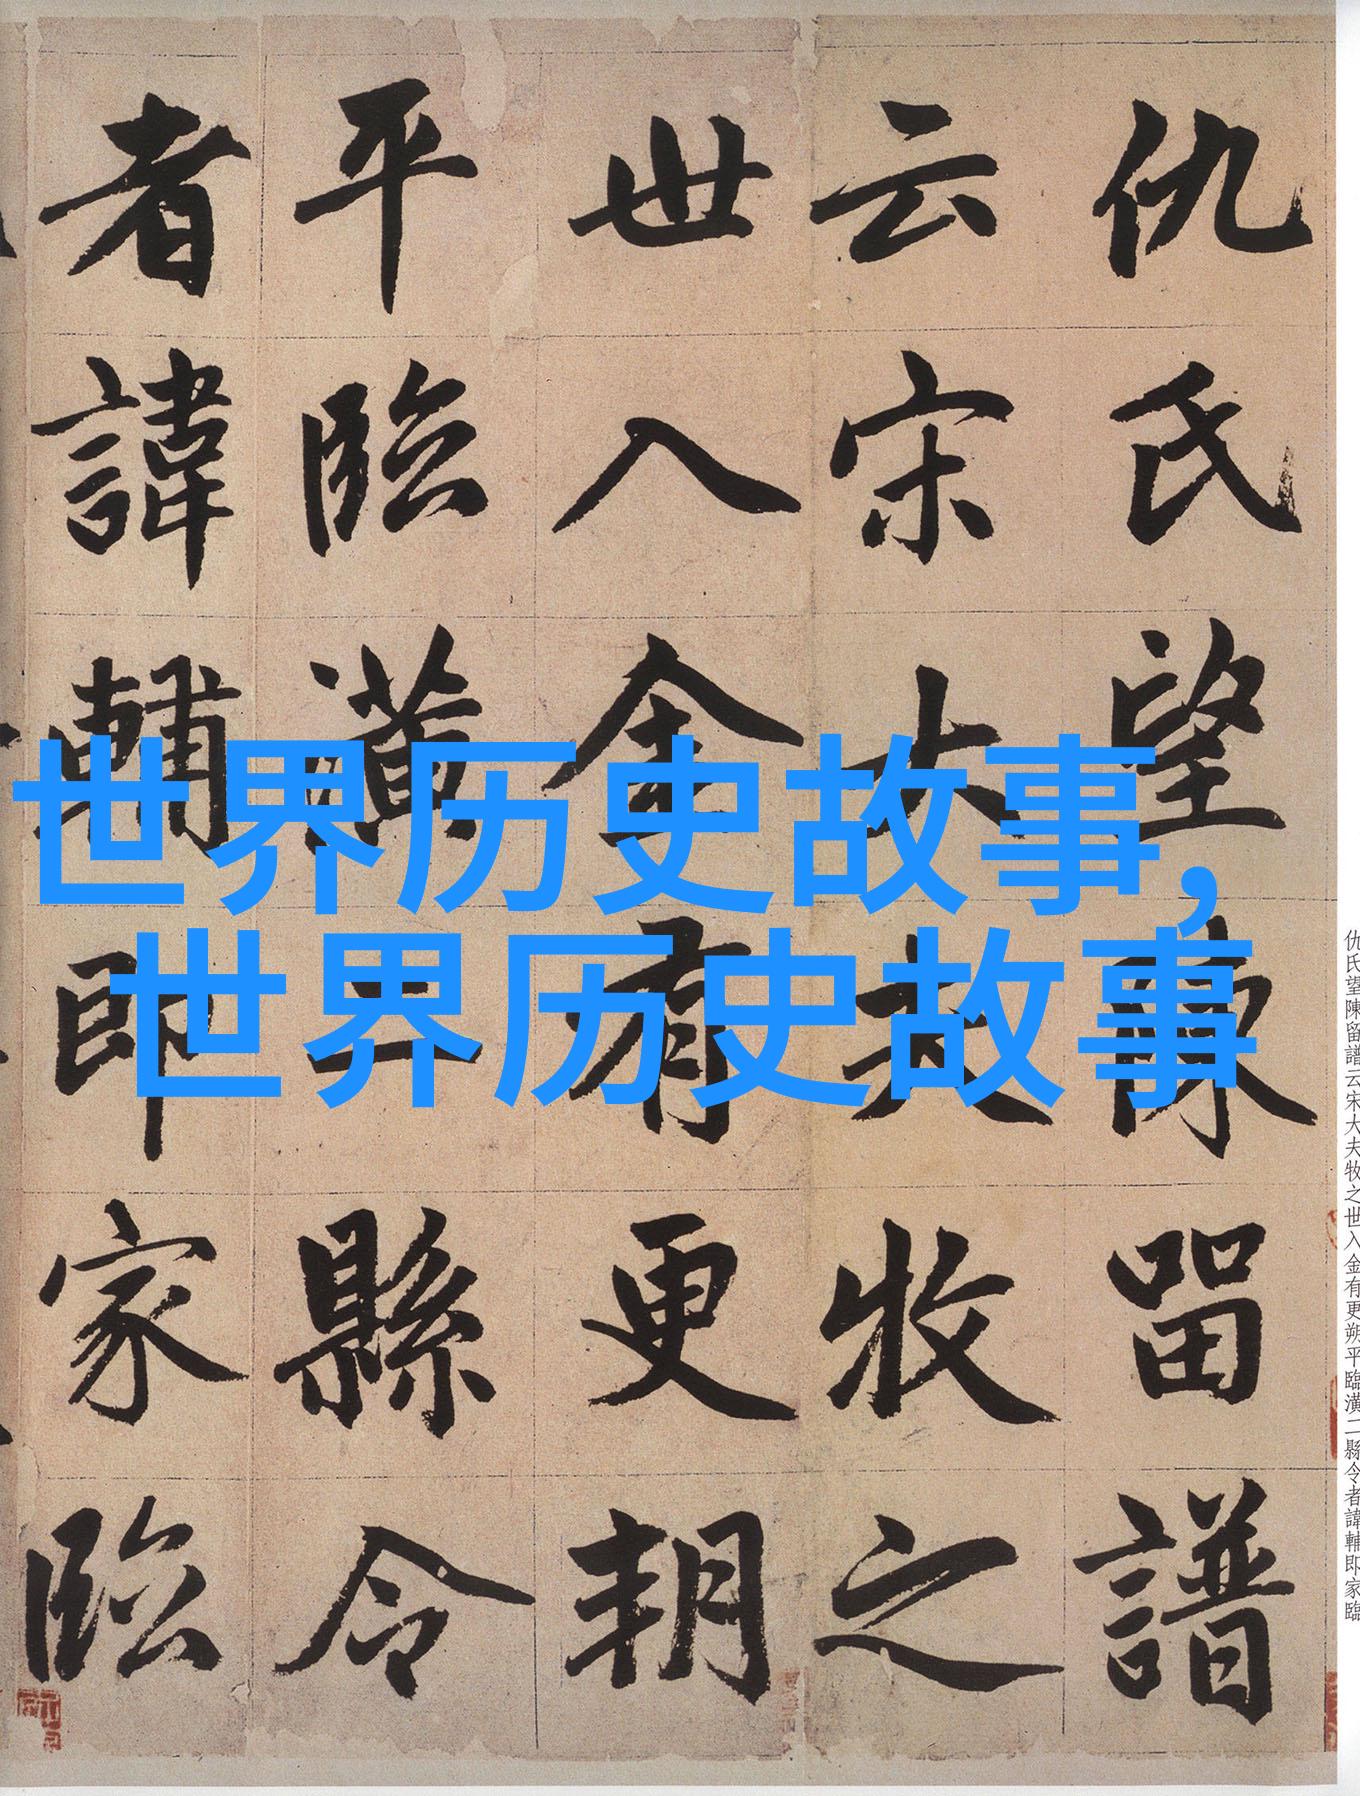 仇氏望陳留譜
云宋大夫牧之
世入金有更朔
平臨潢二縣令
者諱輔即家臨
世界历史故事,
世界历史故事
仇氏望陳留譜云宋大夫牧之世入金有更朔平臨潢二縣令者諱輔即家臨